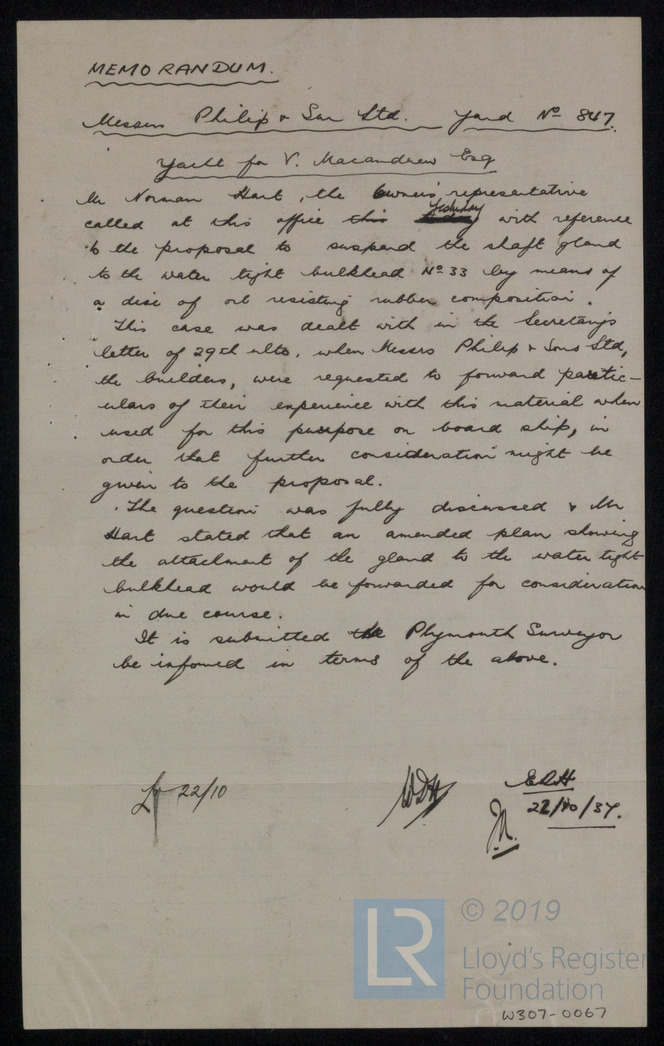 MEMORANDUM.
Messrs Philip & Son Ltd. Yard No 847.
Yacht for V. Macandrew Esq
Mr Norman Hart, the owner's representative
called at this office this yesterday with reference
to the proposal to suspend the shaft gland
to the water tight bulkhead No 33 by means of
a disc of oil resisting rubber composition.
This case was dealt with in the Secretary's
letter of 29th ulto. when Messrs Philip & Sons Ltd,
the builders, were requested to forward partic-
ulars of their experience with this material when
used for this purpose on board ship, in
order that further consideration might be
given to the proposal.
The question was fully discussed & Mr
Hart stated that an amended plan showing
the attachment of the gland to the water tight
bulkhead would be forwarded for consideration
in due course.
It is submitted the Plymouth Surveyor
be informed in terms of the above.
22/10
WDH
22/10/37.
LR
© 2019
Lloyd's Register
Foundation
W307-0067